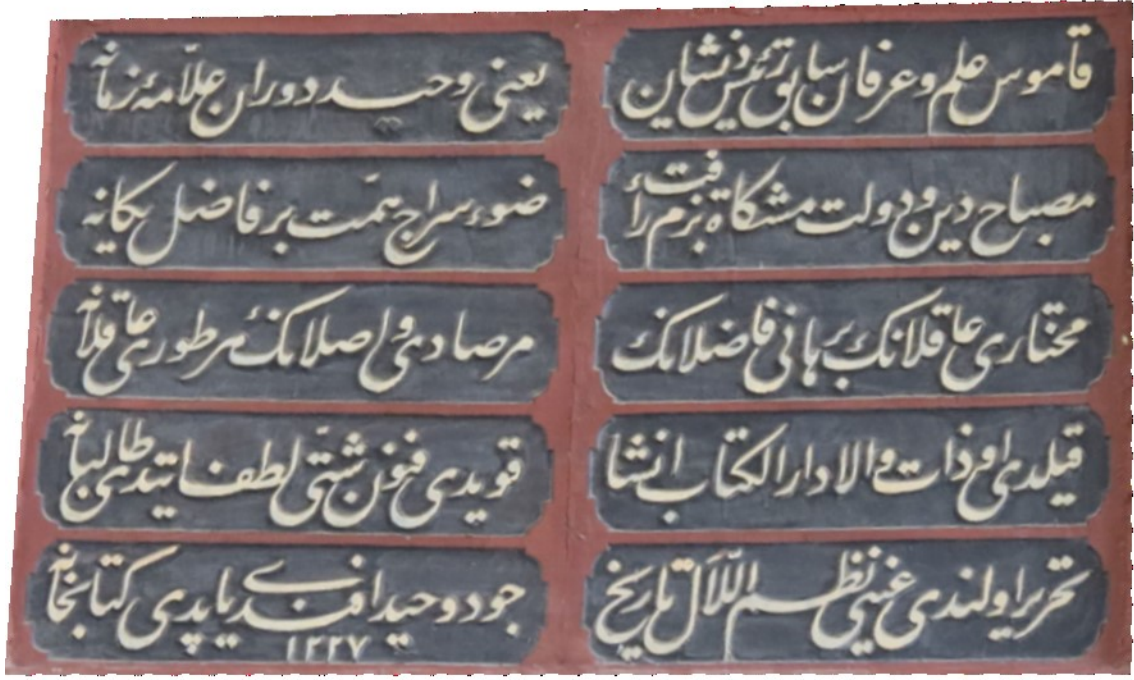 قاموس علم و عرفان سابق رئيس ذيشان
يعنی وحيد دوران علّامهٔ زمانه
مصباح دين و دولت مشكاة بزم رأفت
ضوء سراج همّت بر فاضل يكانه
مختاری عاقلانك برهانی فاضلانك
مرصادی و اصلانك مرطوری عاقلانه
قيلدی او ذات والا دار الكتاب انشا
قويدی فنون شتّی لطف ايتدی طالبانه
تحرير اولندی غنيی نظم اللآل تاريخ
جود وحيد افندی ياپدی كتابخانه
١٢٢٧